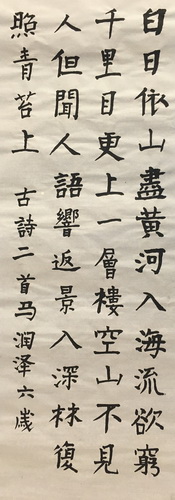 白日依山盡黄河入海流欲窮
千里目更上一層樓空山不見
人但聞人語響返景入深林復
照青苔上 古詩二首马润泽六歲